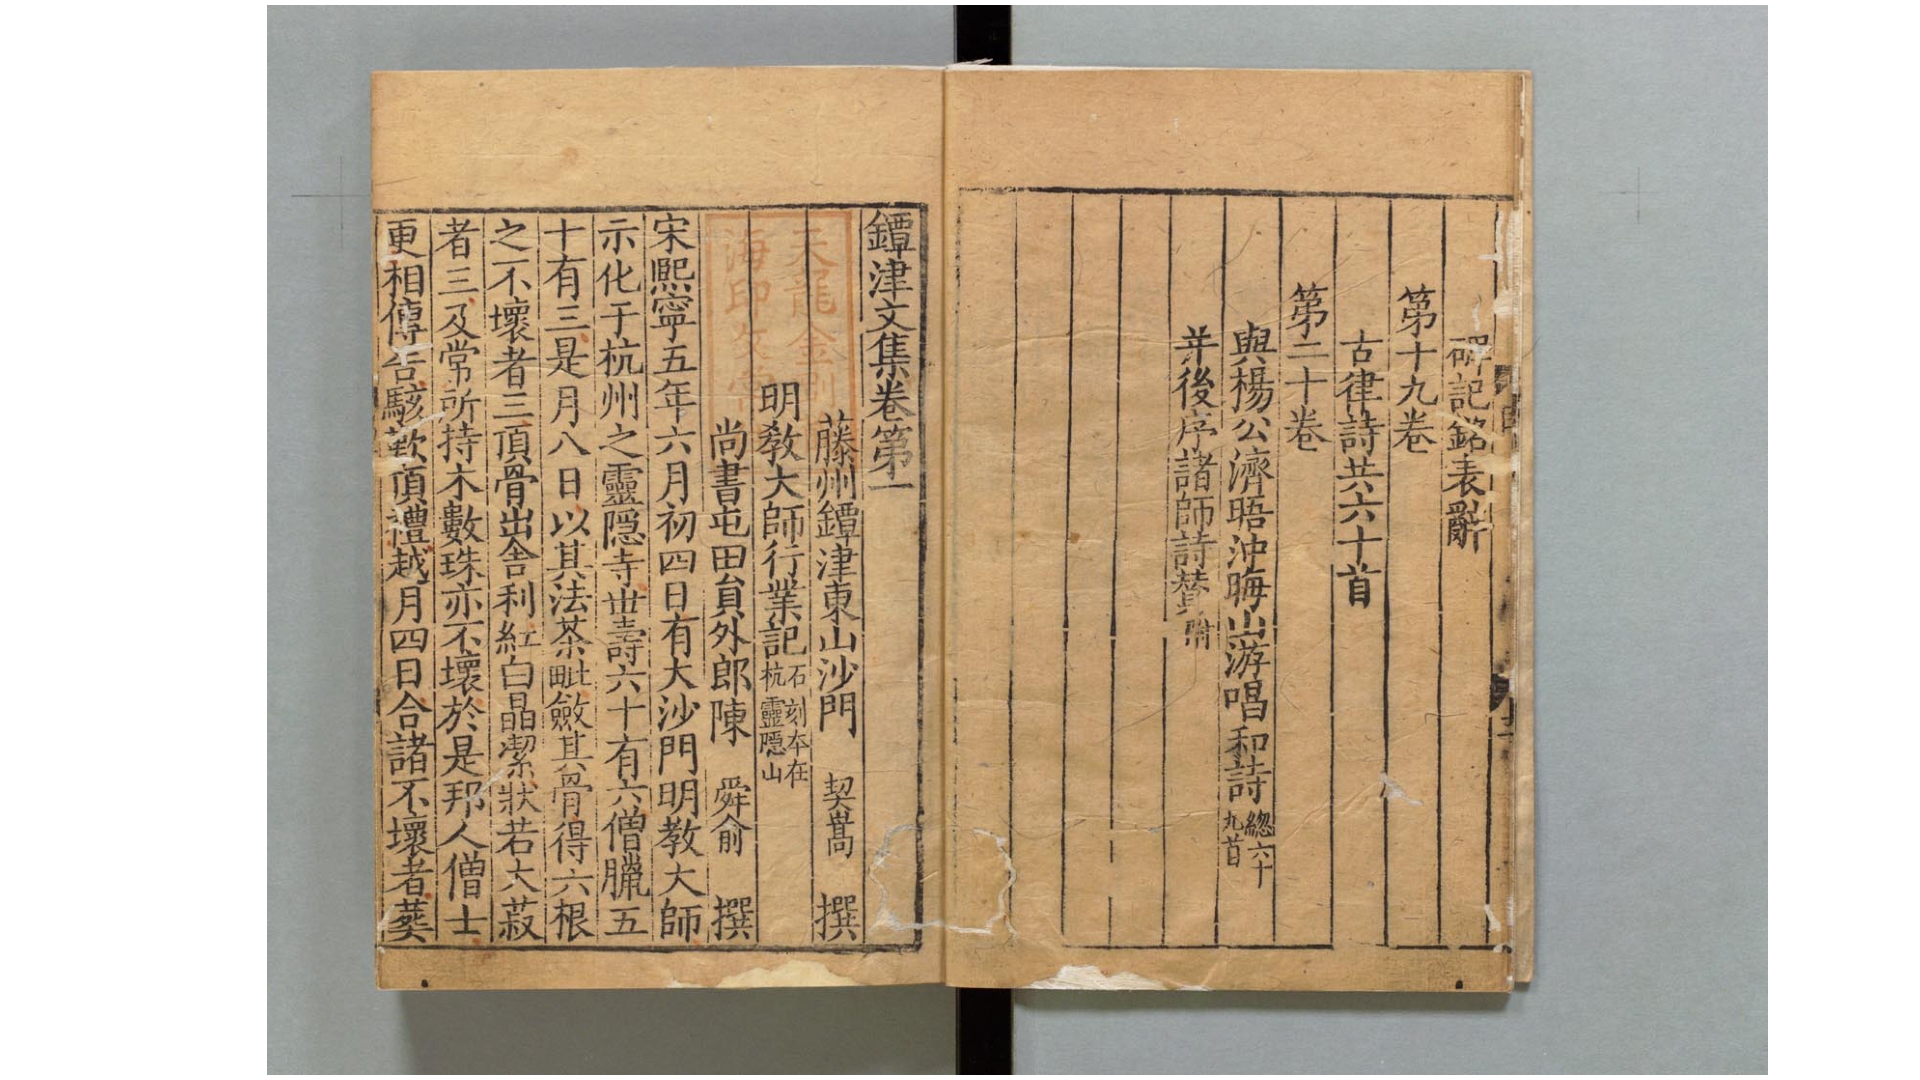 碑記銘表辭
第十九卷
古律詩共六十首
第二十卷
與楊公濟晤沖晦山游唱和詩 總六十九首
并後序諸師詩贊附
鐔津文集卷第一
藤州鐔津東山沙門 契嵩 撰
明教大師行業記 石刻本在杭靈隱山
尚書屯田員外郎陳 舜俞 撰
宋熙寧五年六月初四日有大沙門明教大師
示化于杭州之靈隱寺世壽六十有六僧臘五
十有三是月八日以其法荼毗斂其骨得六根
之不壞者三頂骨出舍利紅白晶潔狀若大菽
者三及常所持木數珠亦不壞於是邦人僧士
更相傳告駭歎頂禮越月四日合諸不壞者葬
天龍金剛
海印文常